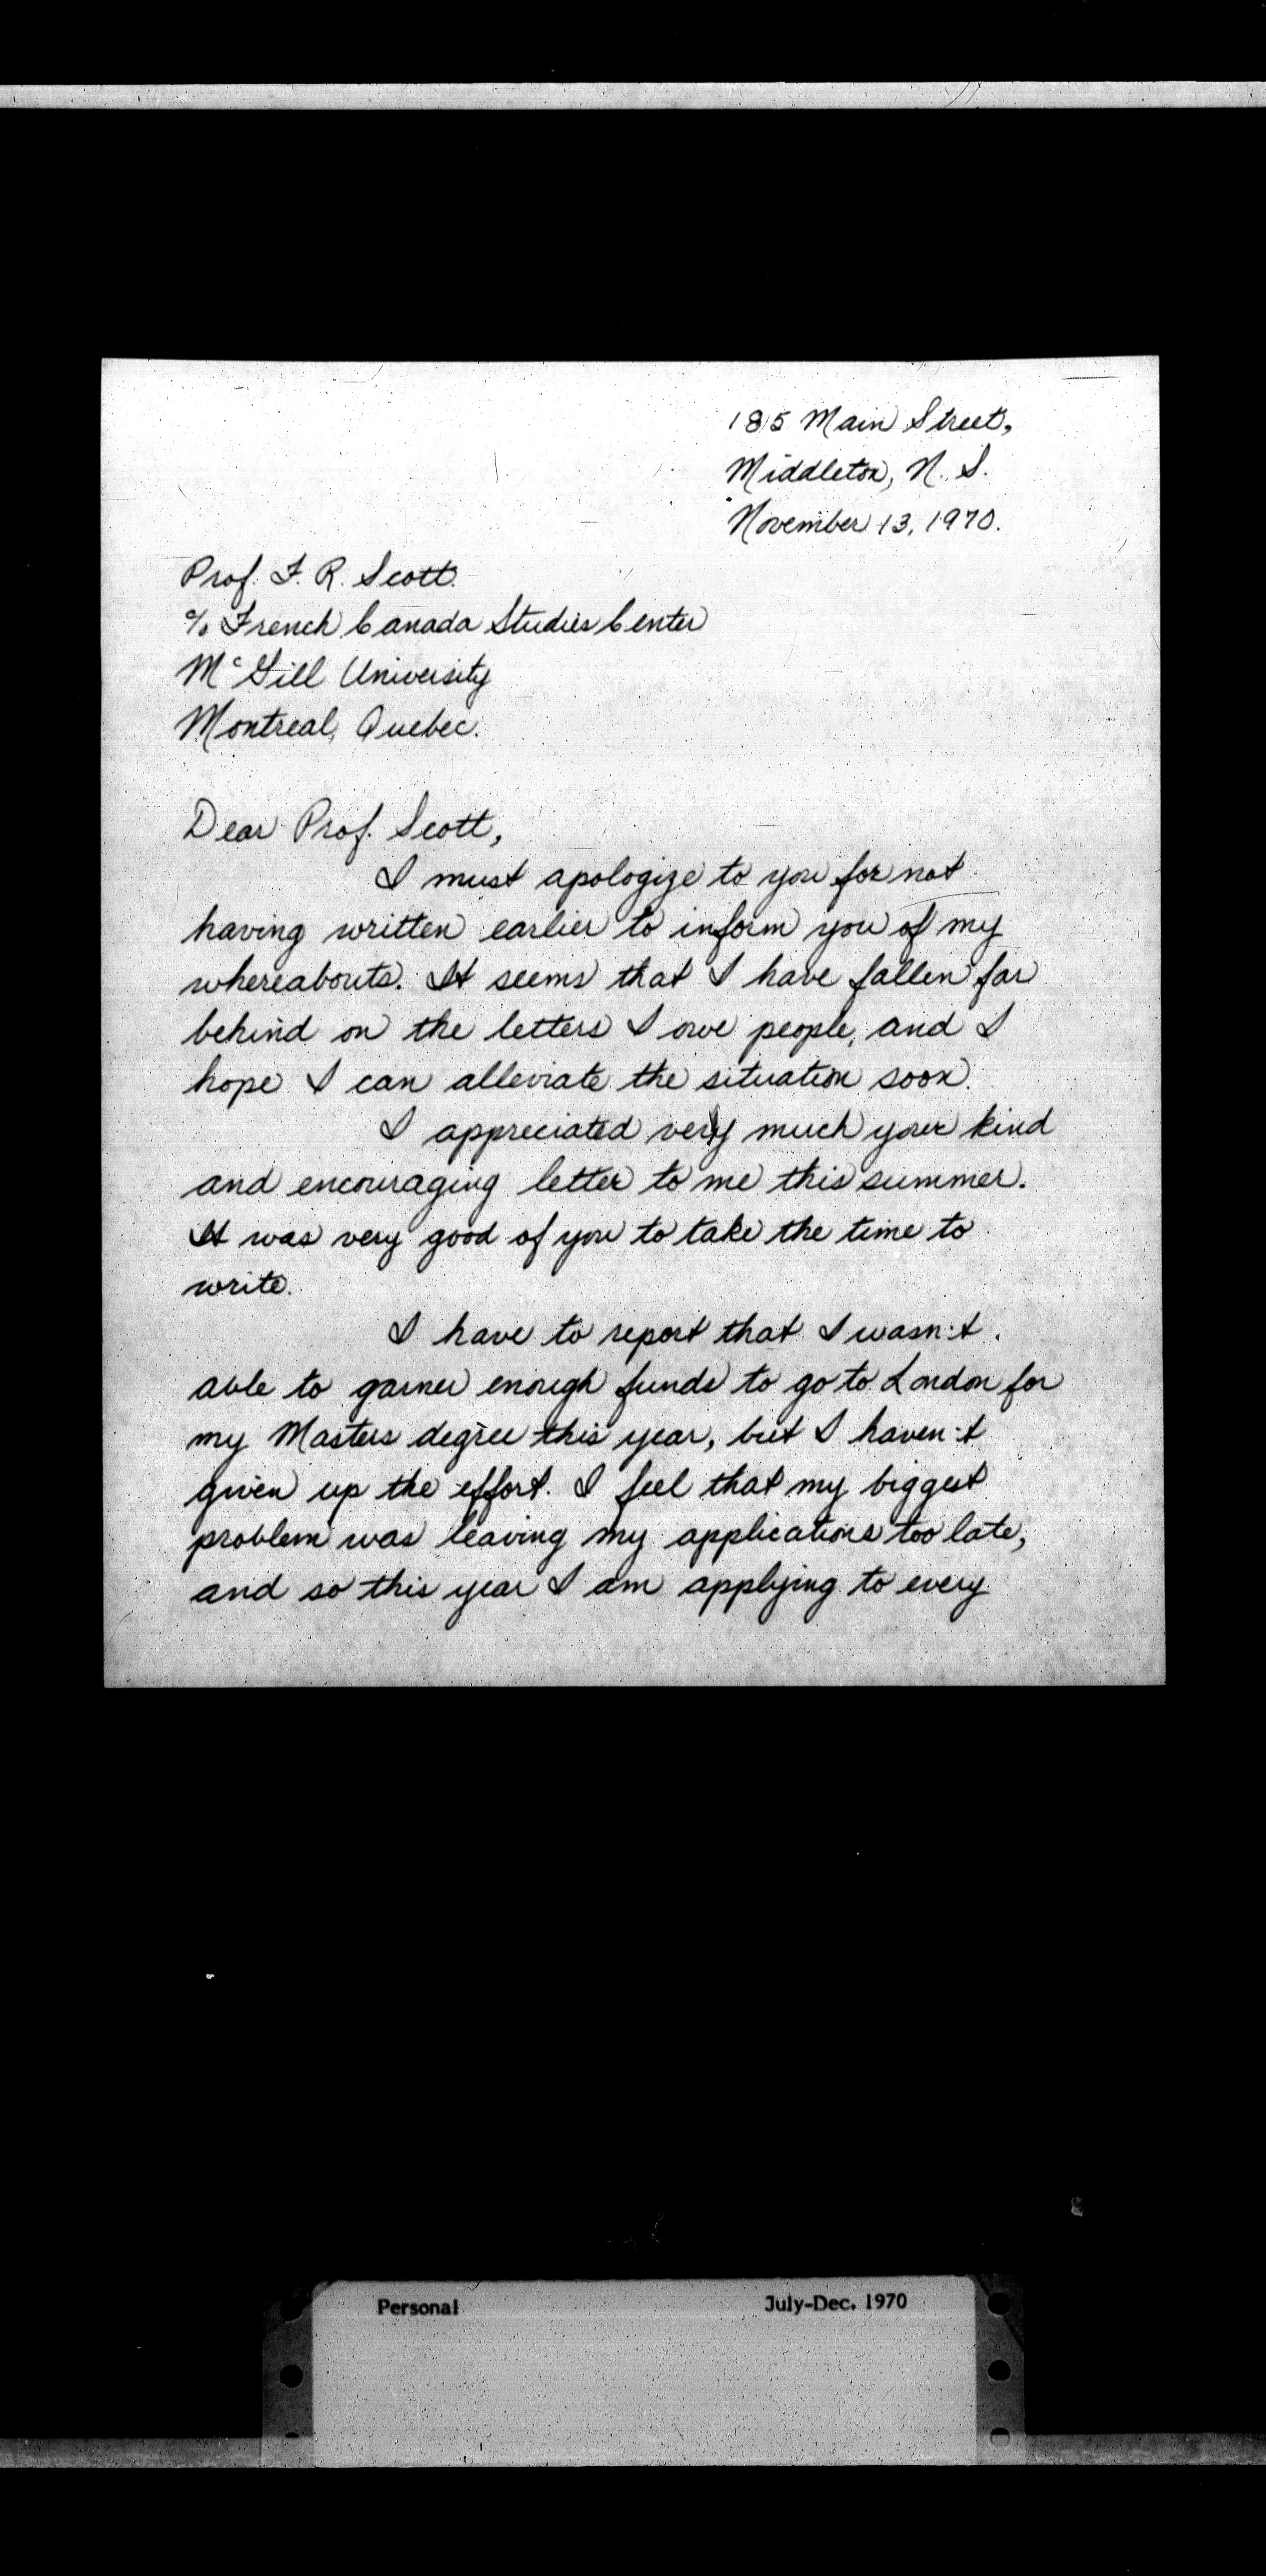 185 Main Street,
Middleton, N. S.
November 13, 1970.
Prof. F. R. Scott.
c/o French Canada Studies Center
McGill University
Montreal, Quebec.
Dear Prof. Scott,
I must apologize to you for not
having written earlier to inform you of my
whereabouts. It seems that I have fallen far
behind on the letters I owe people, and I
hope I can alleviate the situation soon.
I appreciated very much your kind
and encouraging letter to me this summer.
It was very good of you to take the time to
write.
I have to report that I wasn't
able to garner enough funds to go to London for
my Masters degree this year, but I haven't
given up the effort. I feel that my biggest
problem was leaving my applications too late,
and so this year I am applying to every
Personal July-Dec. 1970